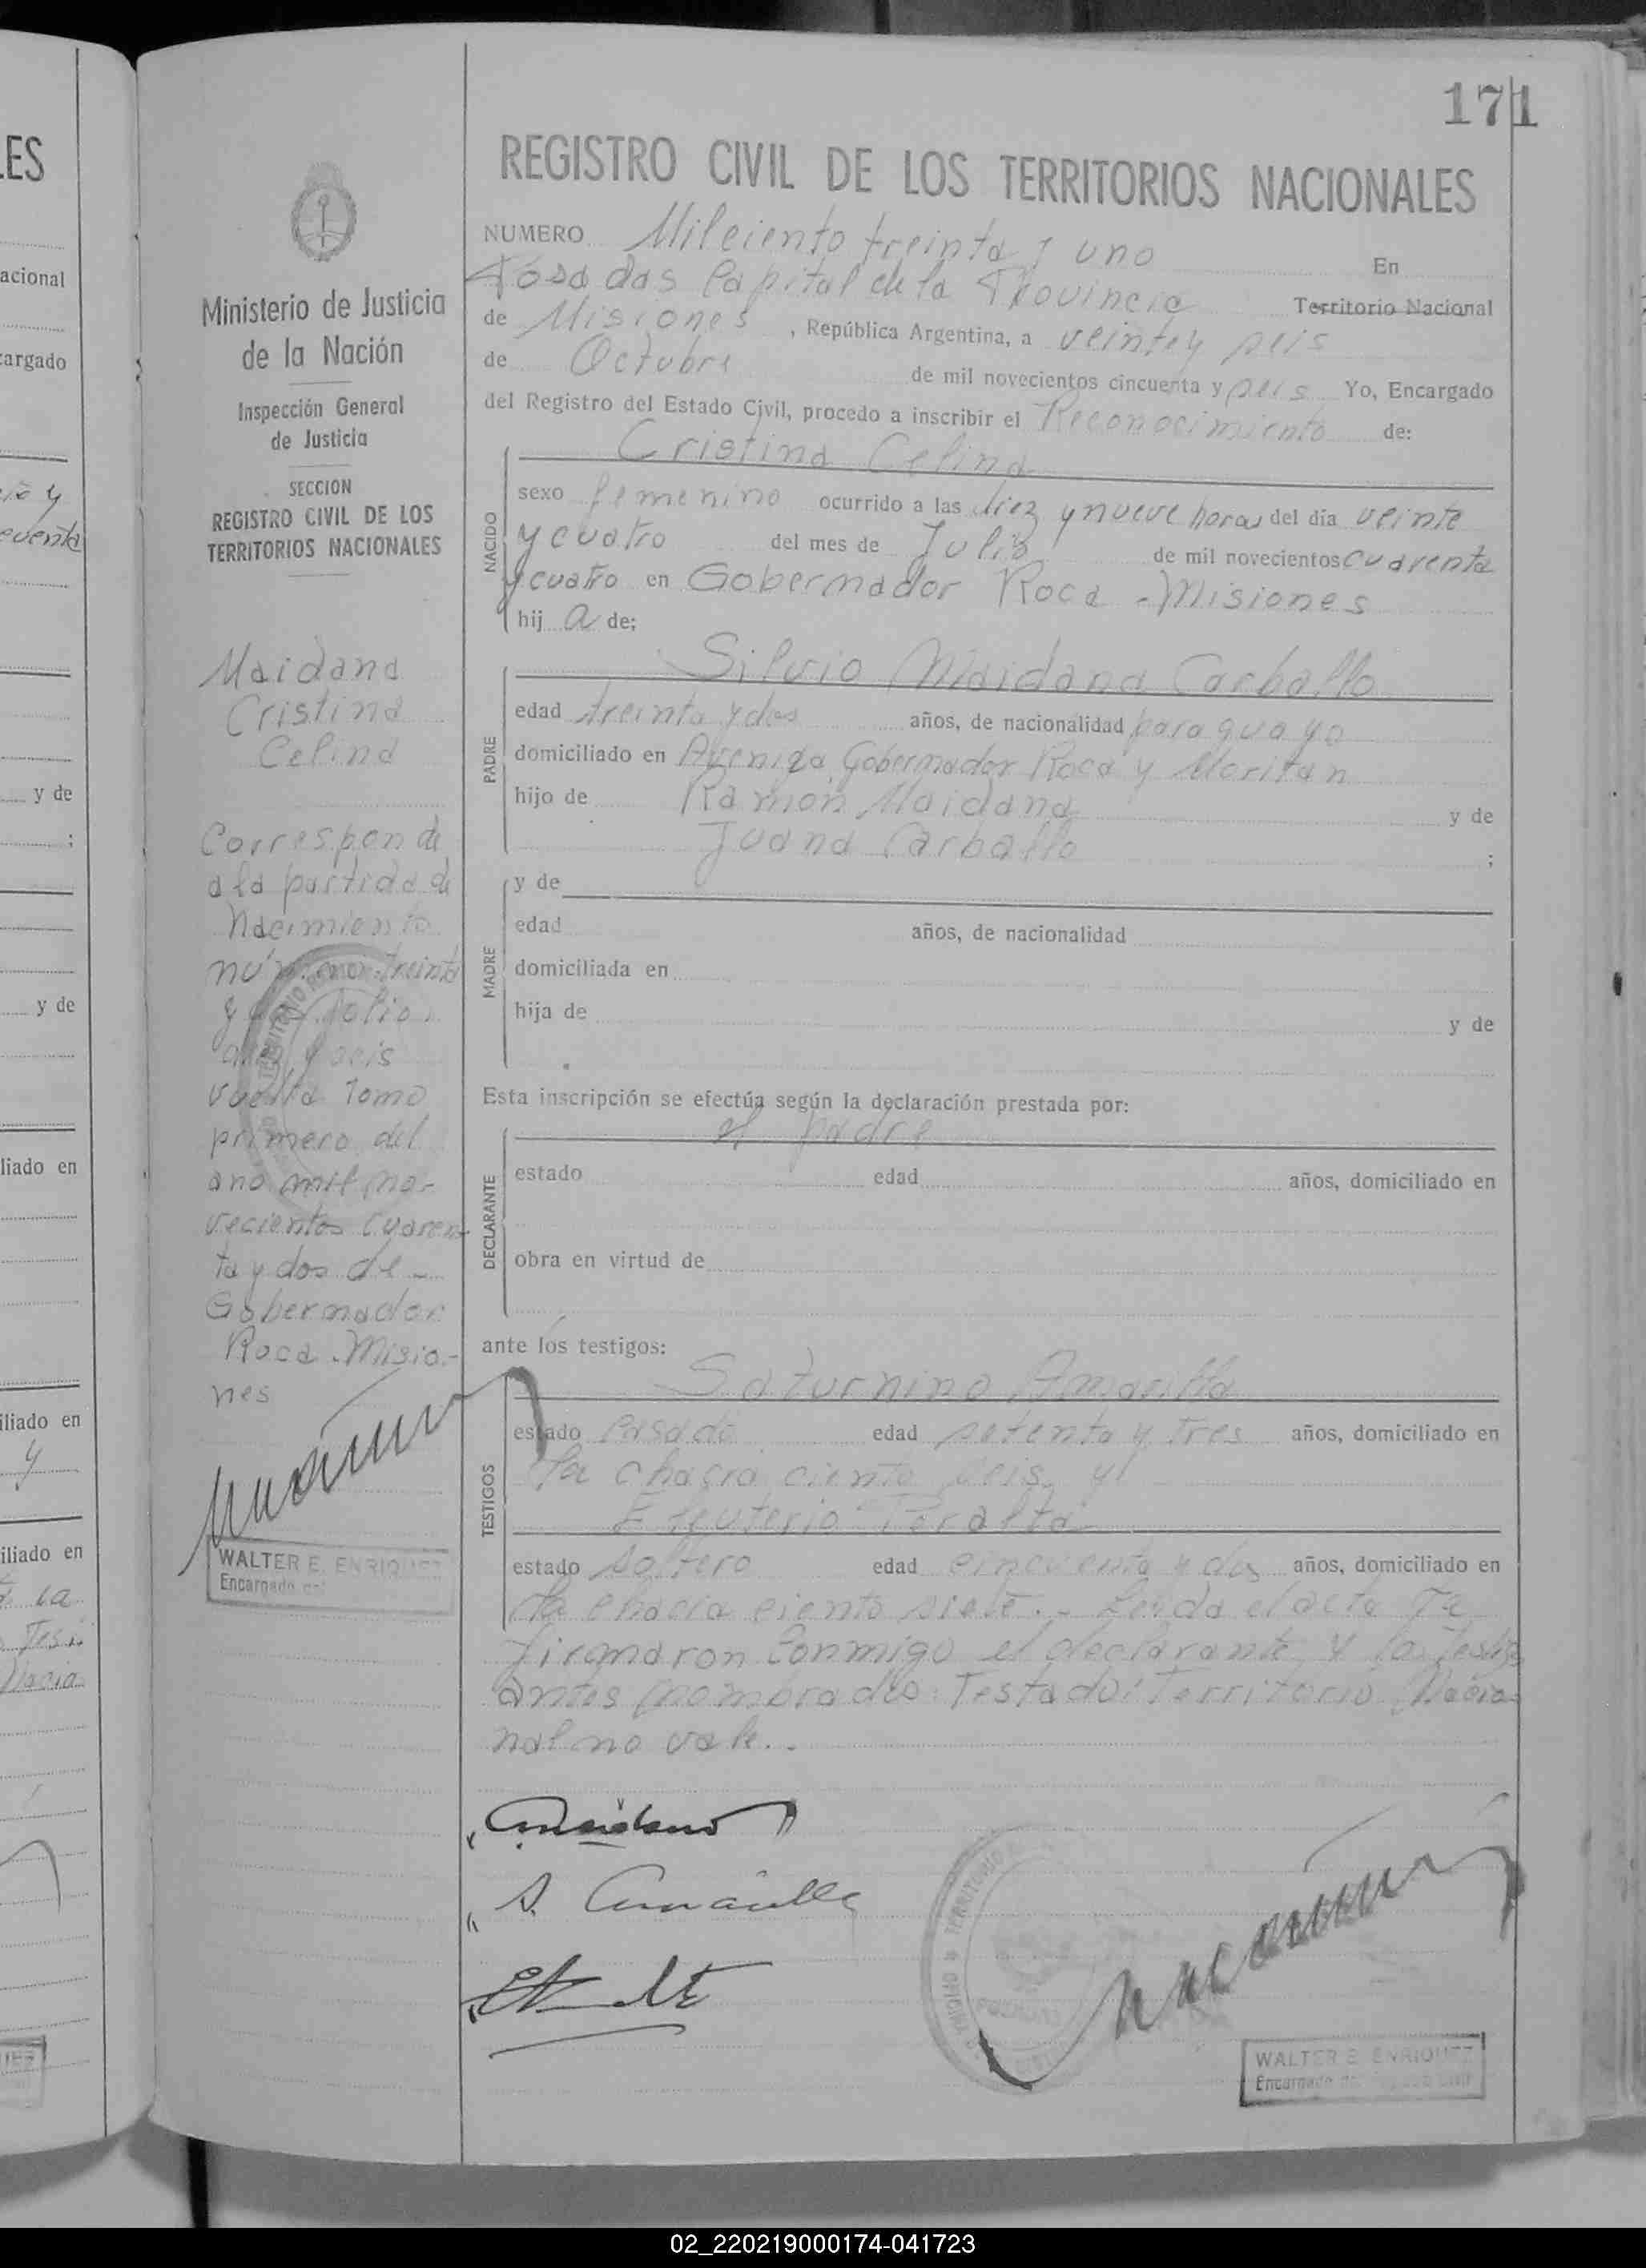 171
REGISTRO CIVIL DE LOS TERRITORIOS NACIONALES
NUMERO Mil ciento treinta y uno En
Posadas Capital de la Provincia Territorio Nacional
de Misiones, República Argentina, a veinte y seis
de Octubre de mil novecientos cincuenta y seis Yo, Encargado
del Registro del Estado Civil, procedo a inscribir el Reconocimiento de:
NACIDO
Cristina Celina
sexo femenino ocurrido a las diez y nueve horas del día veinte
y cuatro del mes de Julio de mil novecientos cuarenta
y cuatro en Gobernador Roca - Misiones
hij a de;
PADRE
Silvio Maidana Carballo
edad treinta y dos años, de nacionalidad paraguayo
domiciliado en Avenida Gobernador Roca y
hijo de Ramón Maidana y de
Juana Carballo ;
MADRE
y de
edad años, de nacionalidad
domiciliada en
hija de y de
Esta inscripción se efectúa según la declaración prestada por:
DECLARANTE
el padre
estado edad años, domiciliado en
obra en virtud de
ante los testigos:
TESTIGOS
Saturnino Amarilla
estado casado edad setenta y tres años, domiciliado en
la chacra ciento seis y
Eleuterio Peralta
estado soltero edad cincuenta y dos años, domiciliado en
la chacra ciento siete.- Leída el acta la
firmaron conmigo el declarante y los testigos
antes nombrados. Testado: Territorio Nacio-
nal no vale.-
S. Amarilla
WALTER E. ENRIQUEZ
Encargado del
Ministerio de Justicia
de la Nación
Inspección General
de Justicia
SECCION
REGISTRO CIVIL DE LOS
TERRITORIOS NACIONALES
Maidana
Cristina
Celina
Corresponde
a la partida de
nacimiento
número treinta
y folio
diez y seis
vuelta Tomo
primero del
año mil no-
vecientos cuaren-
ta y dos de -
Gobernador
Roca - Misio-
nes
WALTER E. ENRIQUEZ
Encargado del
LES
acional
cargado
y de
;
y de
liado en
iliado en
y
iliado en
la
02_220219000174-041723